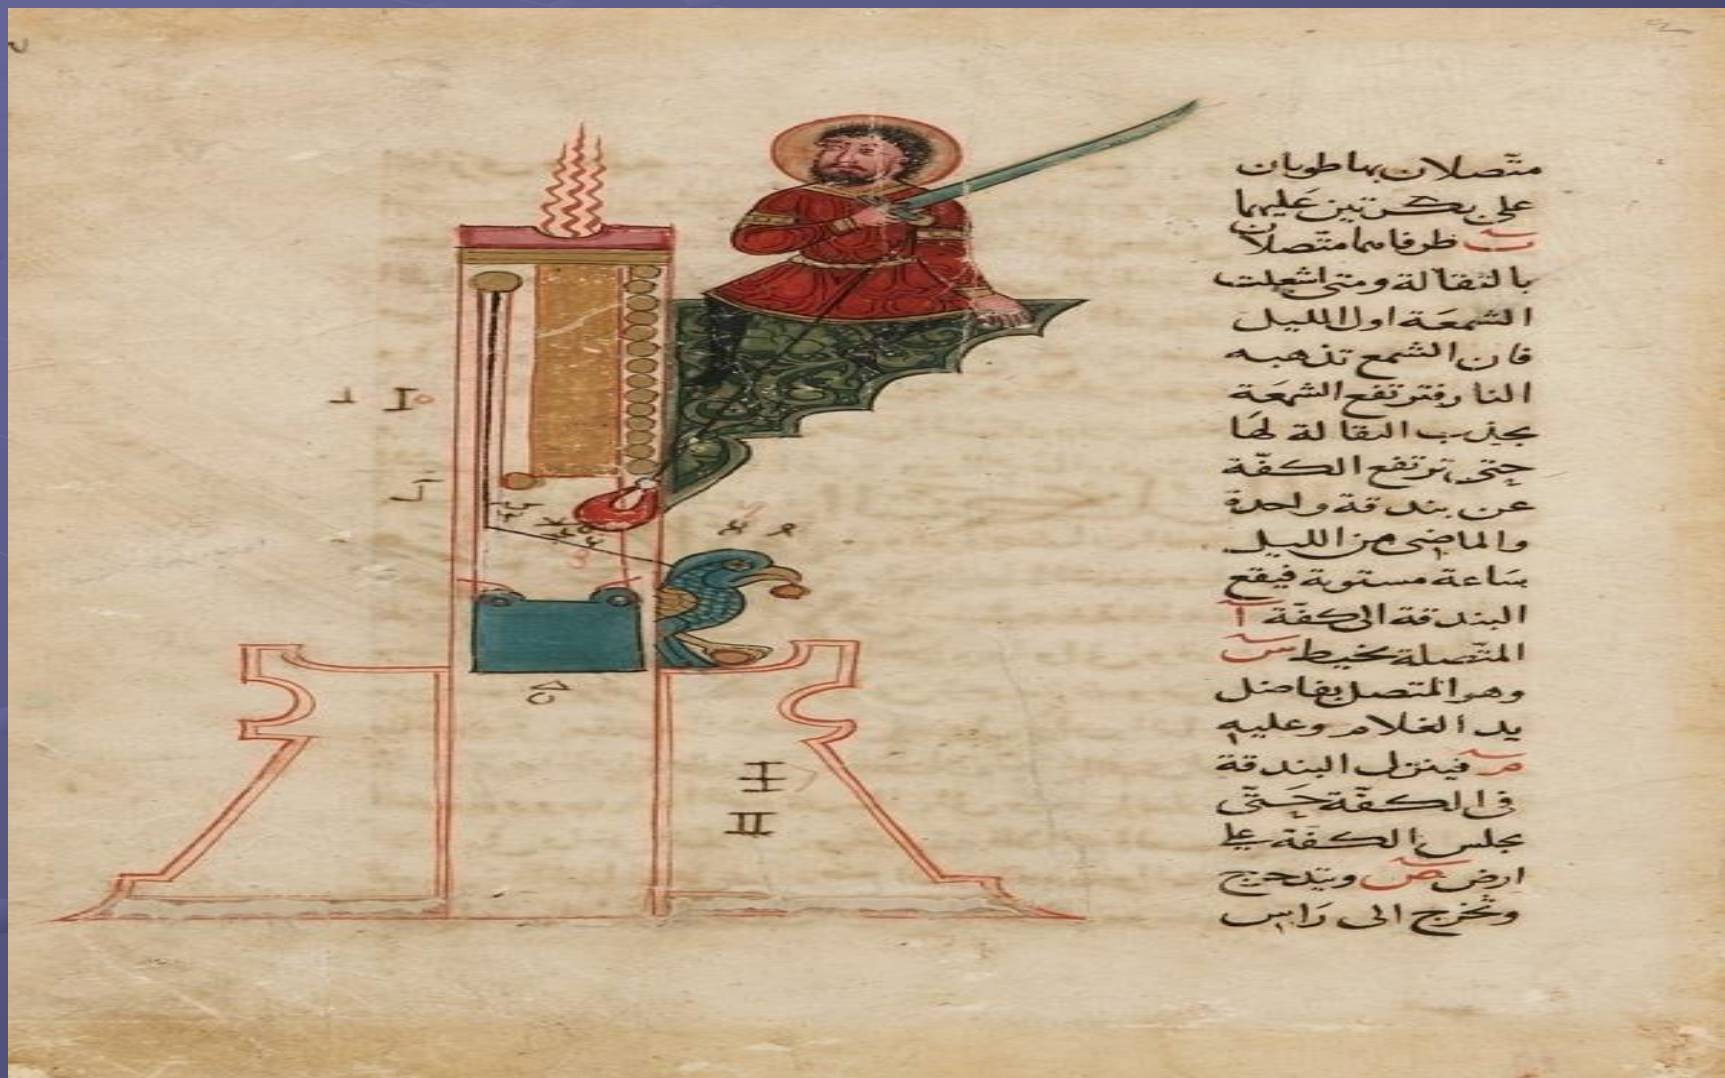 متّصلان بهاطويان
على بكرتين عَليهما
ت طرفاهما متّصلان
بالثقالة ومتى اشعلت
الشمعَة اول الليل
فان الشمع تذهبه
النار فترتفع الشمعَة
بجذب الثقالة لهَا
حتى ترتفع الكفّة
عن بندقة واحدة
والماضى من الليل
سَاعة مستوية فيقع
البندقة الى كفّة آ
المتّصلة بخيط س
وهو المتصل بفاضل
يد الغلام وعليه
م فينزل البندقة
فى الكفّة حَتّى
يجلس الكفّة على
ارض ص ويتدحرج
وتخرج الى رَاس